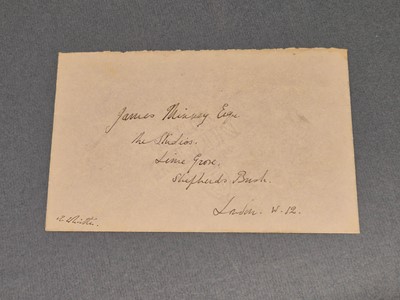 James Minney Esqe
The Studios.
Lime Grove.
Shepherds Bush.
London. W. 12.